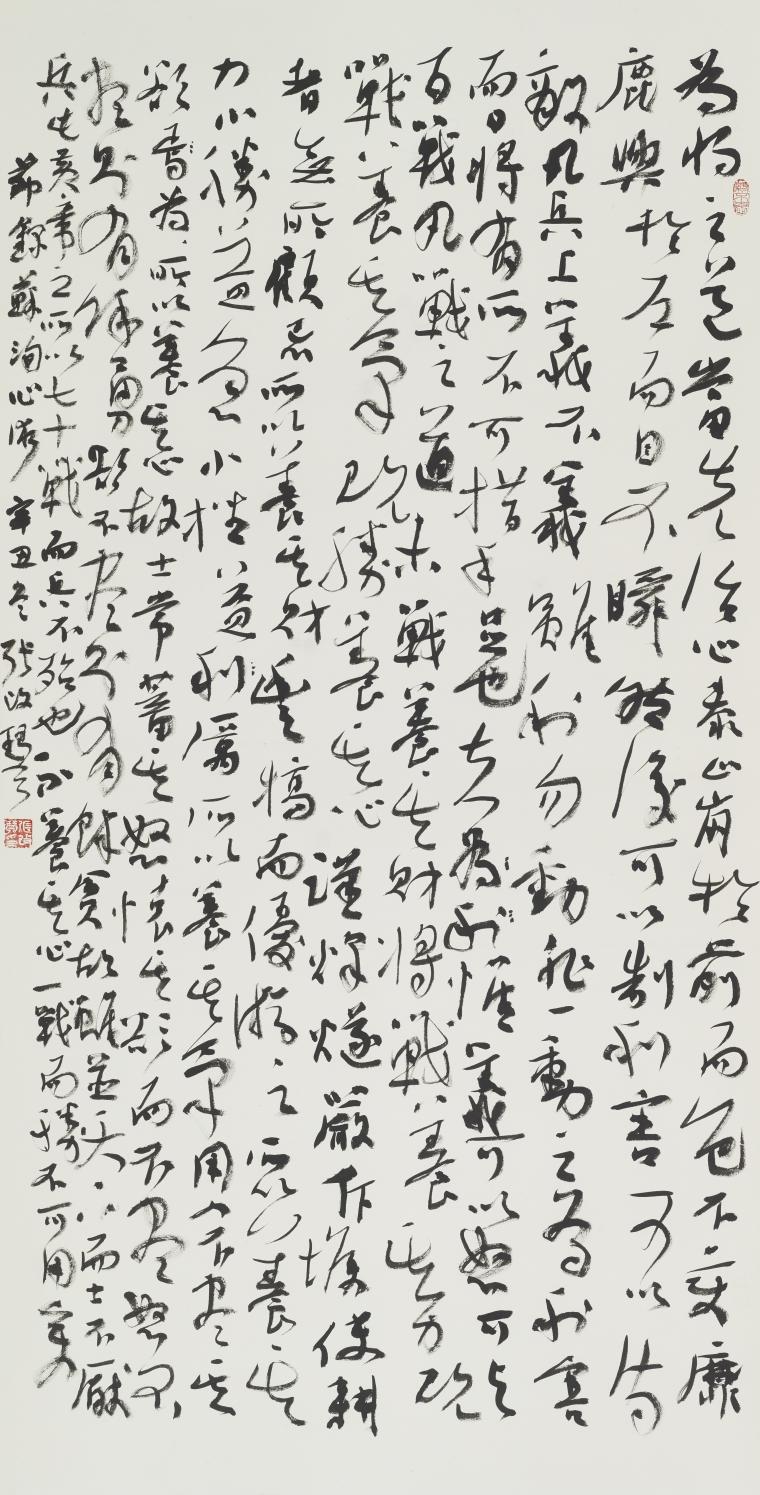 為將之道當先治心泰山崩於前而色不變麋
鹿興於左而目不瞬然後可以制利害可以待
敵凡兵上義不義雖利勿動非一動之為利害
而日將有所不可措手足也夫為利惟義可以怒可与
百戰凡戰之道未戰養其財將戰養其力既
戰養其氣既勝養其心謹烽燧嚴斥堠使耕
者無所顧忌所以養其財豐犒而優游之所以養其
力小勝益急小挫益利厲所以養其氣用人不盡其
欲為所以養其心故士常蓄其怒懷其欲而不盡怒不
盡則有餘勇欲不盡則有餘貪故雖並天下而士不厭
兵此黃帝之所以七十戰而兵不殆也不養其心一戰而勝不可用矣
節錄蘇洵心術 辛丑冬 張改琴